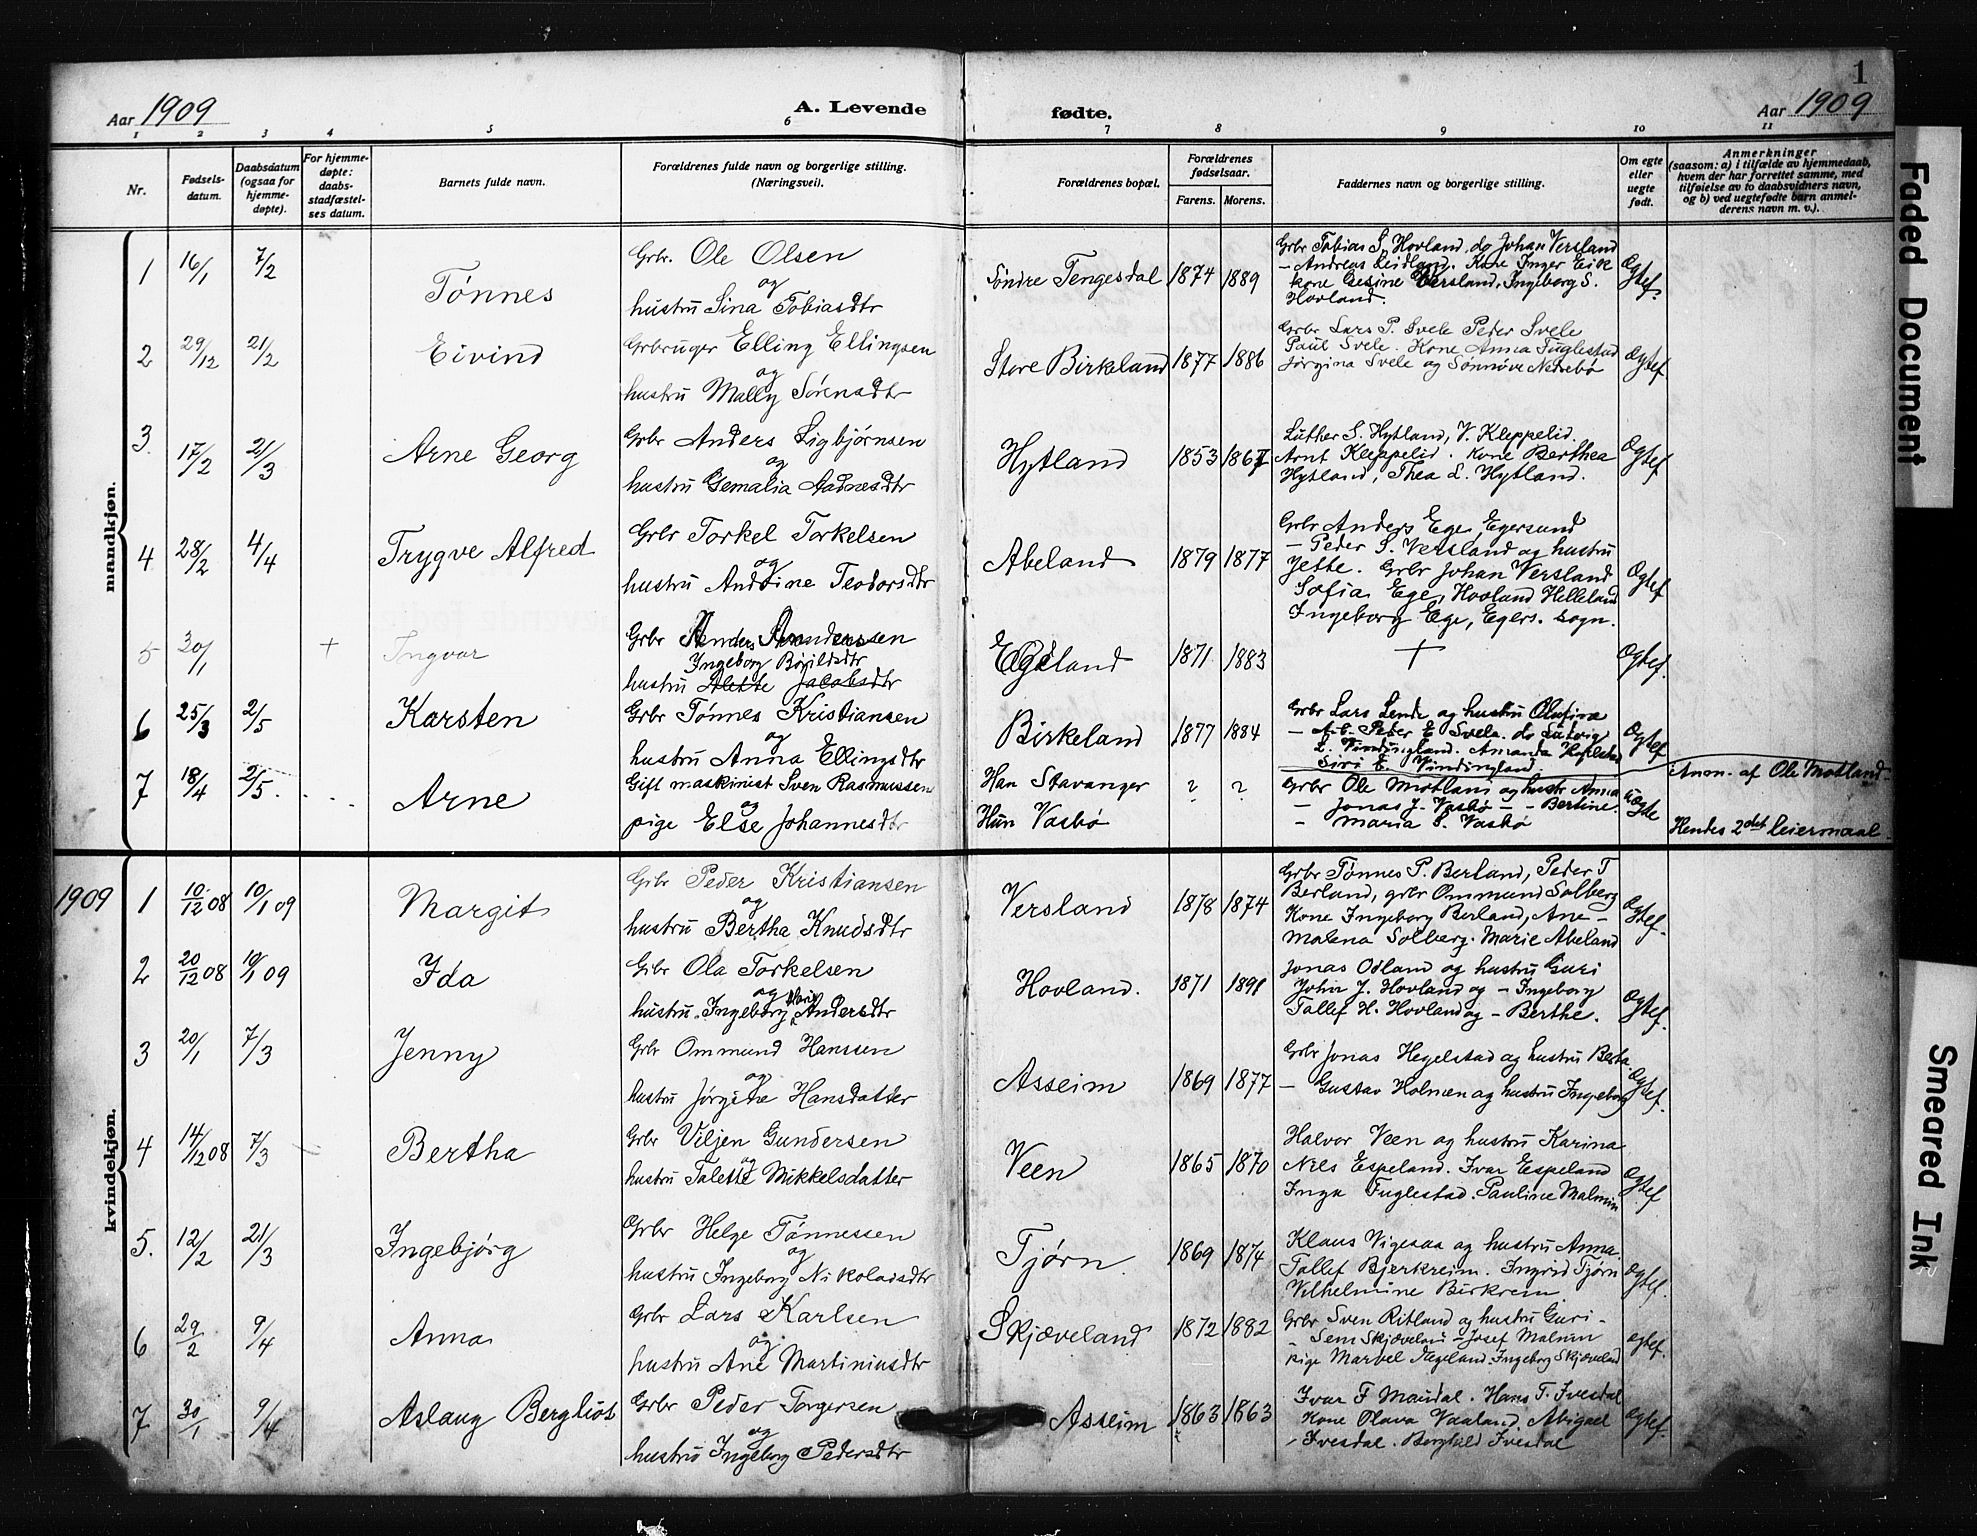 1
Aar 1909 A. Levende fødte. Aar 1909
1 2 3 4 5 6 7 8 9 10 11
Nr.
Fødsels-
datum.
Daabsdatum
(ogsaa for
hjemme-
døpte).
For hjemme-
døpte:
daabs-
stadfæstel-
ses datum.
Barnets fulde navn.
Forældrenes fulde navn og borgerlige stilling.
(Næringsvei).
Forældrenes bopæl.
Forældrenes
fødselsaar.
Farens. Morens.
Faddernes navn og borgerlige stilling.
Om egte
eller
uegte
født.
Anmerkninger
(saasom: a) i tilfælde av hjemmedaab,
hvem der har forrettet samme, med
tilføielse av to daabsvidners navn,
og b) ved uegtefødte barn anmel-
derens navn m. v.).
mandkjøn.
1 16/1 7/2 Tønnes
Grbr. Ole Olsen
og
hustru Sina Tobiasdtr
Søndre Tengesdal 1874 1889
Grbr Tobias S. Hovland. do Johan Versland
– Andreas Leidland. Kone Inger Eik
kone Gesine Versland, Ingeborg S.
Hovland.
Ægtef.
2 29/12 21/2 Eivind
Grbruger Elling Ellingsen
og
hustru Mally Sørensdtr
Store Birkeland 1877 1886
Grbr Lars P. Svele Peder Svele
Paul Svele. Kone Anna Fuglestad
Jørgina Svele og Sønnøve Nedrebø
Ægtef
3. 17/2 21/3 Arne Georg
Grbr Anders Sigbjørnsen
og
hustru Gemalia Aadnesdtr
Hytland 1853 1867
Luther S. Hytland, V. Kleppelid.
Arnt Kleppelid. Kone Berthea
Hytland, Thea L. Hytland.
Ægtef
4 28/2 4/4 Trygve Alfred
Grbr Torkel Torkelsen
og
hustru Andrine Teodorsdtr
Abeland 1879 1877
Grbr Anders Ege, Egersund
– Peder S. Versland og hustru
Jette. Grbr Johan Versland
Sofia Ege, Hovland Helleland
Ingeborg Ege, Egers. sogn.
Ægtef
5 30/1 + Ingvar
Grbr Anders Andersen
Ingeborg
hustru Jacobsdtr
Egeland 1871 1883
+
Ægtef.
6 25/3 2/5 Karsten
Grbr Tønnes Kristiansen
og
hustru Anna Ellingsdtr
Birkeland 1877 1884
Grbr Lars Lende og hustru Olufine
Peder E Svela. do Ludvig
L. Vindingland. Amanda
Siri E Vindingland
Ægtef
7 18/4 2/5. Arne
Gift maskinist Sven Rasmussen
og
pige Else Johannesdtr
Han Stavanger ? ?
Hun Vasbø
Grbr Ole Motland og hustr Anna
– Jonas J. Vasbø – – Bertine.
– Maria S. Vasbø
Uægte
Anm. af Ole Motland.
Hendes 2det leiermaal.
kvindekjøn.
1909 1 10/12 08 10/1 09 Margit
Grbr Peder Kristiansen
og
hustru Bertha Knudsdtr
Versland 1878 1874
Grbr Tønnes P. Berland, Peder T
Berland, grbr Ommund Solberg
Kone Ingeborg Berland, Ane –
Malena Solberg. Marie Abeland
Ægtef.
2 20/12 08 10/1 09 Ida
Grbr Ola Torkelsen
og
hustru Ingeborg Marie Andersdtr
Hovland. 1871 1891
Jonas Odland og hustru Guri
Johan J. Hovland og – Ingeborg
Tallef H. Hovland og – Berthe.
Ægtef.
3 20/1 7/3 Jenny
Grbr Ommund Hanssen
og
hustru Jørgine Hansdatter
Asseim 1869 1877
Grbr Jonas Hegelstad og hustru Berta.
– Gustav Holmen og hustru Ingeborg
Ægtef.
4 14/12 08 7/3 Bertha
Grbr Viljen Gundersen
og
hustru Talette Mikkelsdatter
Veen 1865 1870
Halvor Veen og hustru Karina
Nils Espeland. Ivar Espeland
Inga Fuglestad. Pauline Malmin
Ægtef
5. 12/2 21/3 Ingebjørg
Grbr Helge Tønnessen
og
hustru Ingeborg Nikolaisdtr
Tjørn 1869 1874
Klaus Vigesaa og hustru Anna.
Tallef Bjerkreim. Ingrid Tjørn
Vilhelmine Birkrem.
Ægtef.
6 29/2 9/4 Anna
Grbr Lars Karlsen
og
hustru Ane Martiniusdtr
Skjæveland 1872 1882
Grbr Sven Ritland og hustru Guri –
– Sem Skjæveland – Josef Malmin
pige Ingeborg Skjæveland
Ægtef.
7 30/1 9/4 Aslaug Bergliot
Grbr Peder Torgersen
og
hustru Ingeborg Pedersdtr
Asseim 1863 1863
Ivar F Maudal. Hans T. Ivesdal
Kone Olava Vaaland. Abigael
Ivesdal. Berghild Ivesdal
Ægtef.
Faded Document
Smeared Ink